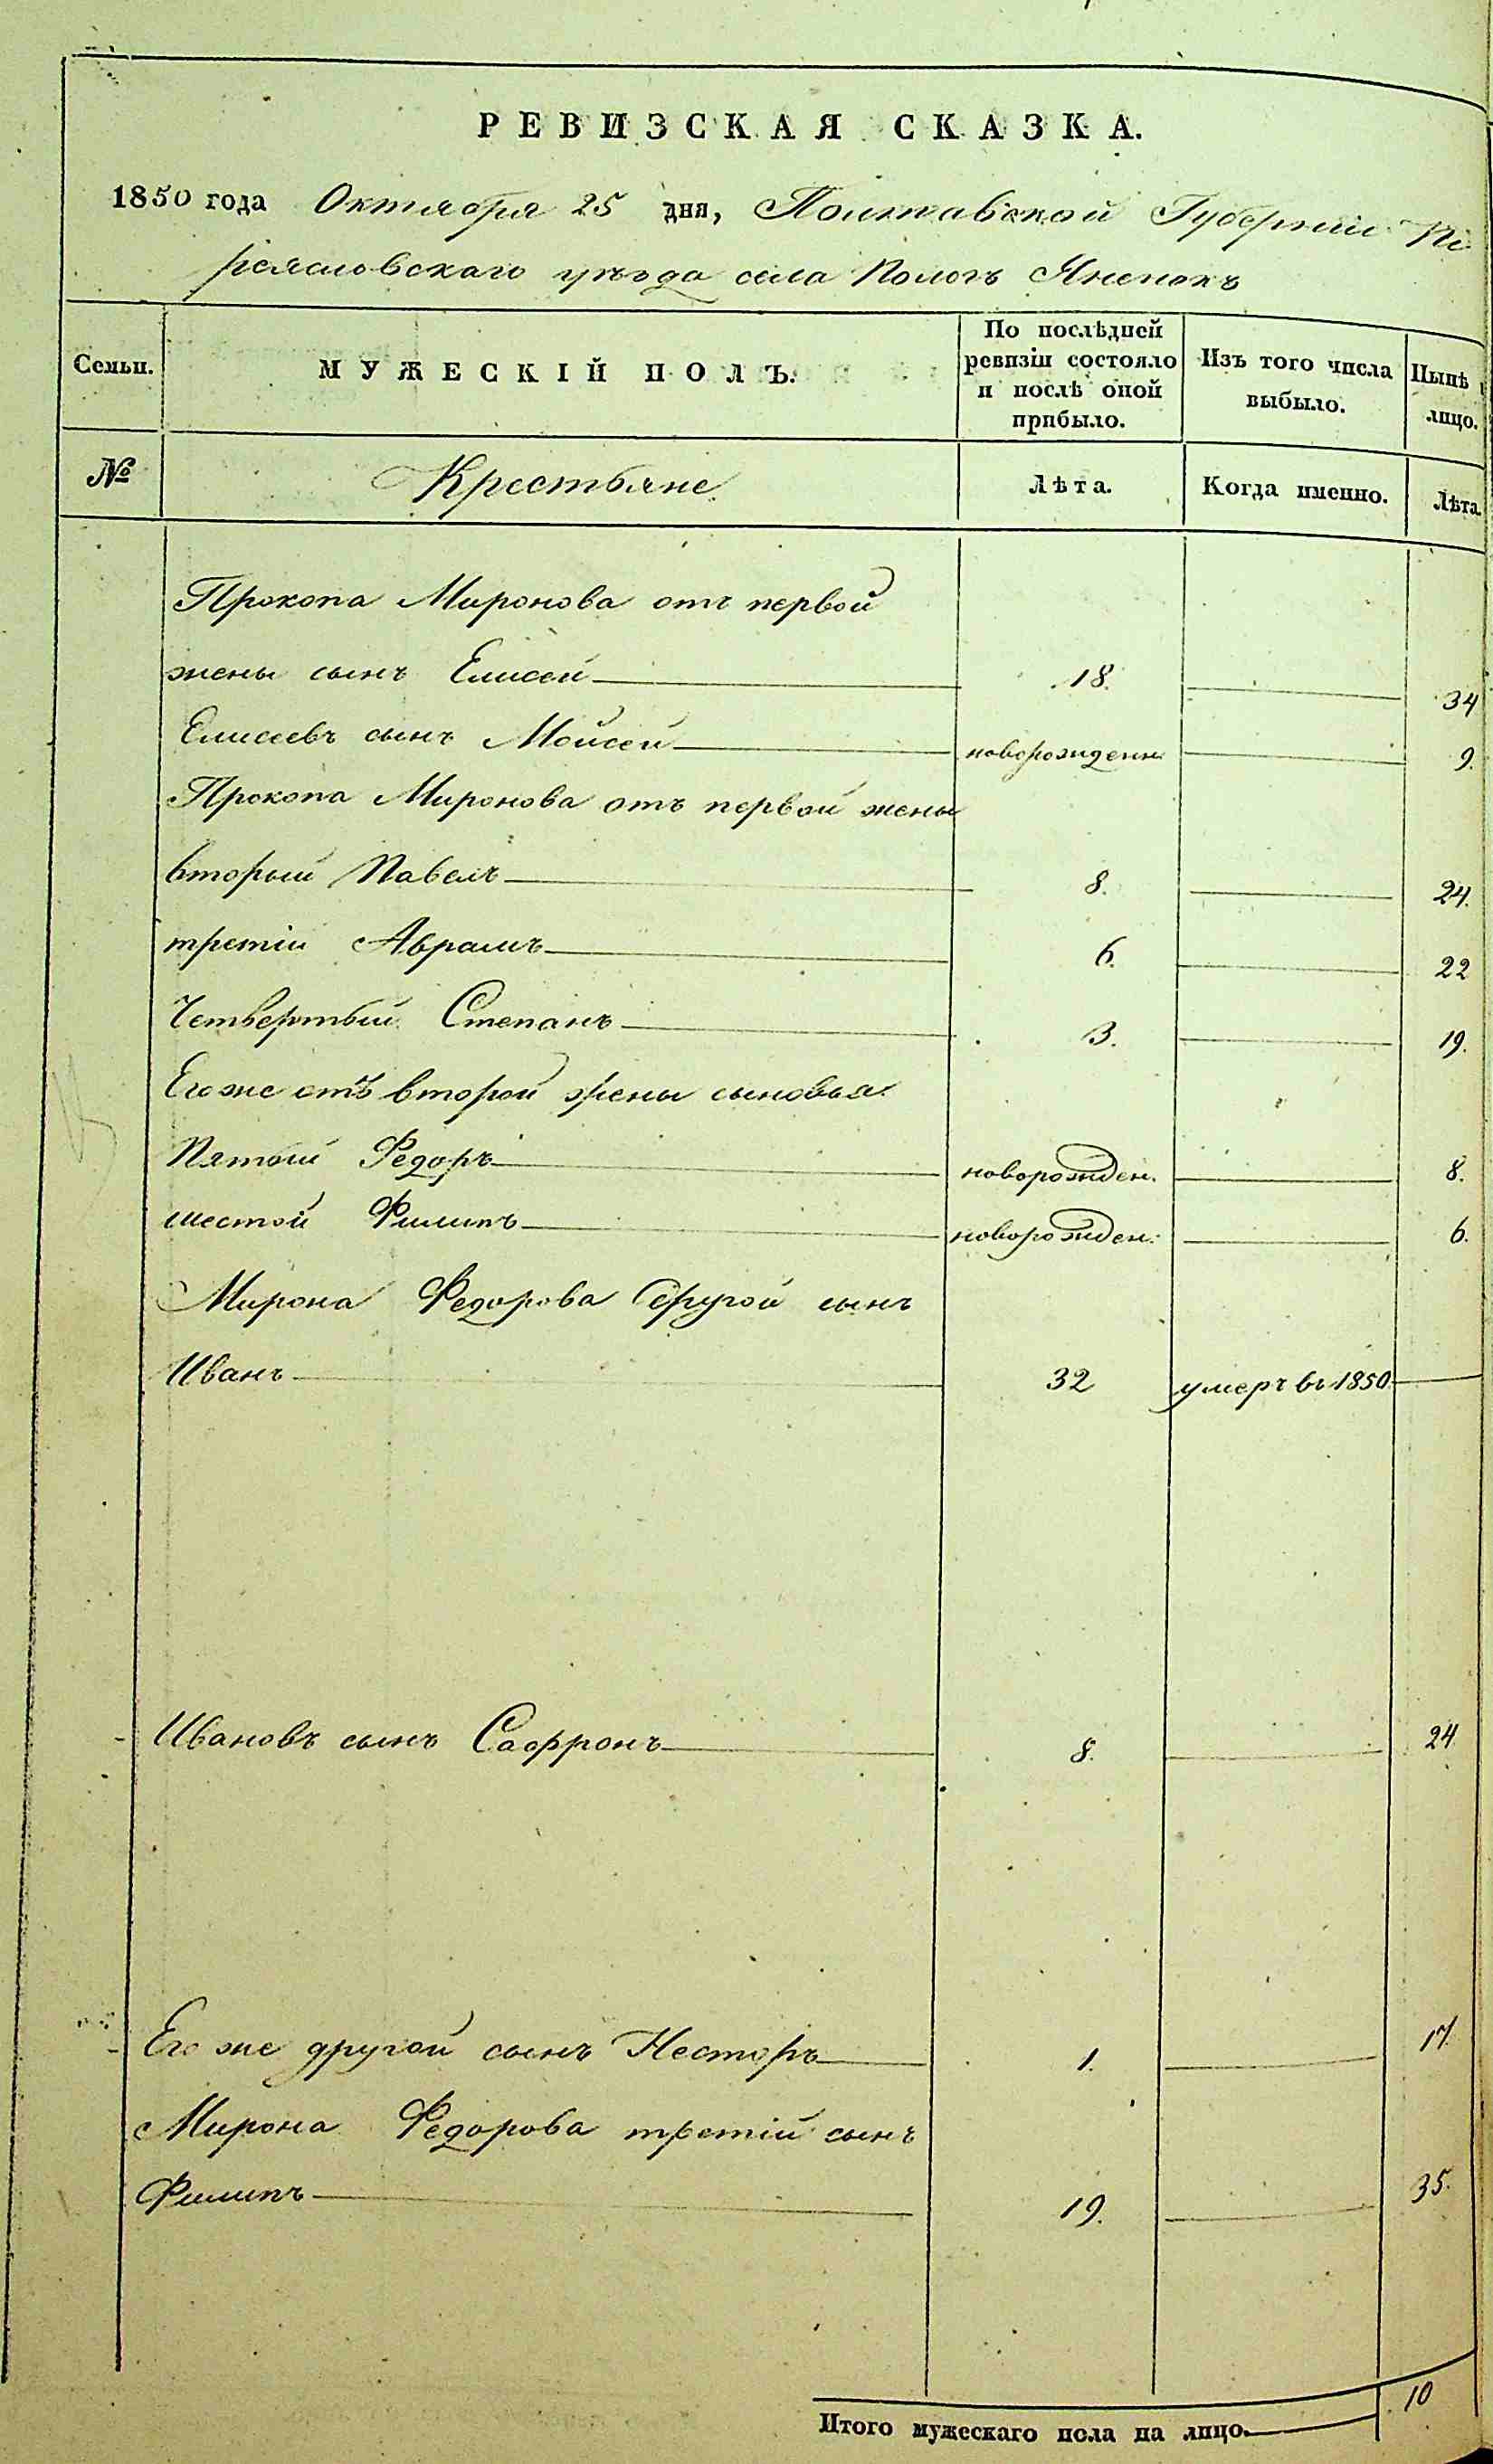 РЕВИЗСКАЯ СКАЗКА.
1850 года Октября 25 дня, Полтавской Губерніи Пе
реясловскаго уѣзда села Пологъ Яненокъ
Семьи.
МУЖЕСКІЙ ПОЛЪ.
По послѣдней
ревизіи состояло
и послѣ оной
прибыло.
Изъ того числа
выбыло.
Нынѣ
лицо.
№
Крестьяне
Лѣта.
Когда именно.
Лѣта.
Прокопа Миронова отъ первой
жены сынъ Елисей 18. 34
Елисеевъ сынъ Мойсей новорожденн. 9.
Прокопа Миронова отъ первой жены
вторый Павелъ 8. 24.
третій Аврамъ 6. 22
Четвертый Степанъ 3. 19.
Его же отъ второй жены сыновья
Пятый Федоръ новорожден. 8.
шестой Филипъ новорожден. 6.
Мирона Федорова другой сынъ
Иванъ 32 умеръ въ 1850
Ивановъ сынъ Сафронъ 8. 24
Его же другой сынъ Несторъ 1. 17.
Мирона Федорова третій сынъ
Филипъ 19. 35.
Итого мужескаго пола на лицо. 10